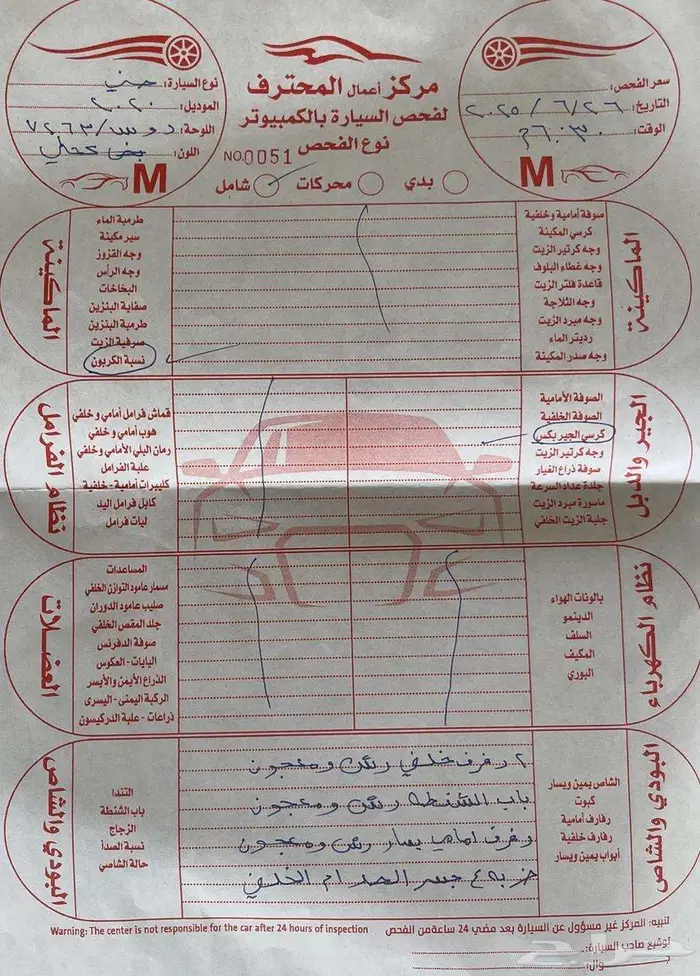 مركز أعمال المحترف
لفحص السيارة بالكمبيوتر
نوع الفحص
NO.0051
بدي
محركات
شامل
سعر الفحص:
التاريخ: ٢٠٢٥/٦/٢٦
الوقت: ٦:٣٠م
M
نوع السيارة: جني
الموديل: ٢٠٢٠
اللوحة: ٧٢٦٣/
اللون:
M
الماكينة
صوفة أمامية وخلفية
كرسي المكينة
وجه كرتير الزيت
وجه غطاء البلوف
قاعدة فلتر الزيت
وجه الثلاجة
وجه مبرد الزيت
رديتر الماء
وجه صدر المكينة
الماكينة
طرمبة الماء
سير مكينة
وجه القزوز
وجه الرأس
البخاخات
صفاية البنزين
طرمبة البنزين
صوفية الزيت
نسبة الكربون
الجير والدبل
الصوفة الأمامية
الصوفة الخلفية
كرسي الجير بكس
وجه كرتير الزيت
صوفة ذراع الغيار
جلدة عداد السرعة
ماسورة مبرد الزيت
جلبة الزيت الخلفي
نظام الفرامل
قماش فرامل أمامي وخلفي
هوب أمامي وخلفي
رمان البلي الأمامي وخلفي
علبة الفرامل
كليبرات أمامية - خلفية
كابل فرامل اليد
ليات فرامل
نظام الكهرباء
بالونات الهواء
الدينمو
السلف
المكيف
البوري
العضلات
المساعدات
مسمار عامود التوازن الخلفي
صليب عامود الدوران
جلد المقص الخلفي
صوفة الدفرنس
البايات - العكوس
الذراع الأيمن والأيسر
الركبة اليمنى - اليسرى
ذراعات - علبة الدركيسون
البودي والشاص
الشاص يمين ويسار
كبوت
رفارف أمامية
رفارف خلفية
أبواب يمين ويسار
٢ رفرف خلفي رش ومعجون
باب الشنطه رش ومعجون
رفرف امامي يسار رش ومعجون
ضربه ع جسر الصدام الخلفي
البودي والشاص
التندا
باب الشنطة
الزجاج
نسبة الصدأ
حالة الشاصي
تنبيه: المركز غير مسؤول عن السيارة بعد مضي 24 ساعة من الفحص
Warning: The center is not responsible for the car after 24 hours of inspection
توقيع صاحب السيارة:
وال:
حراج